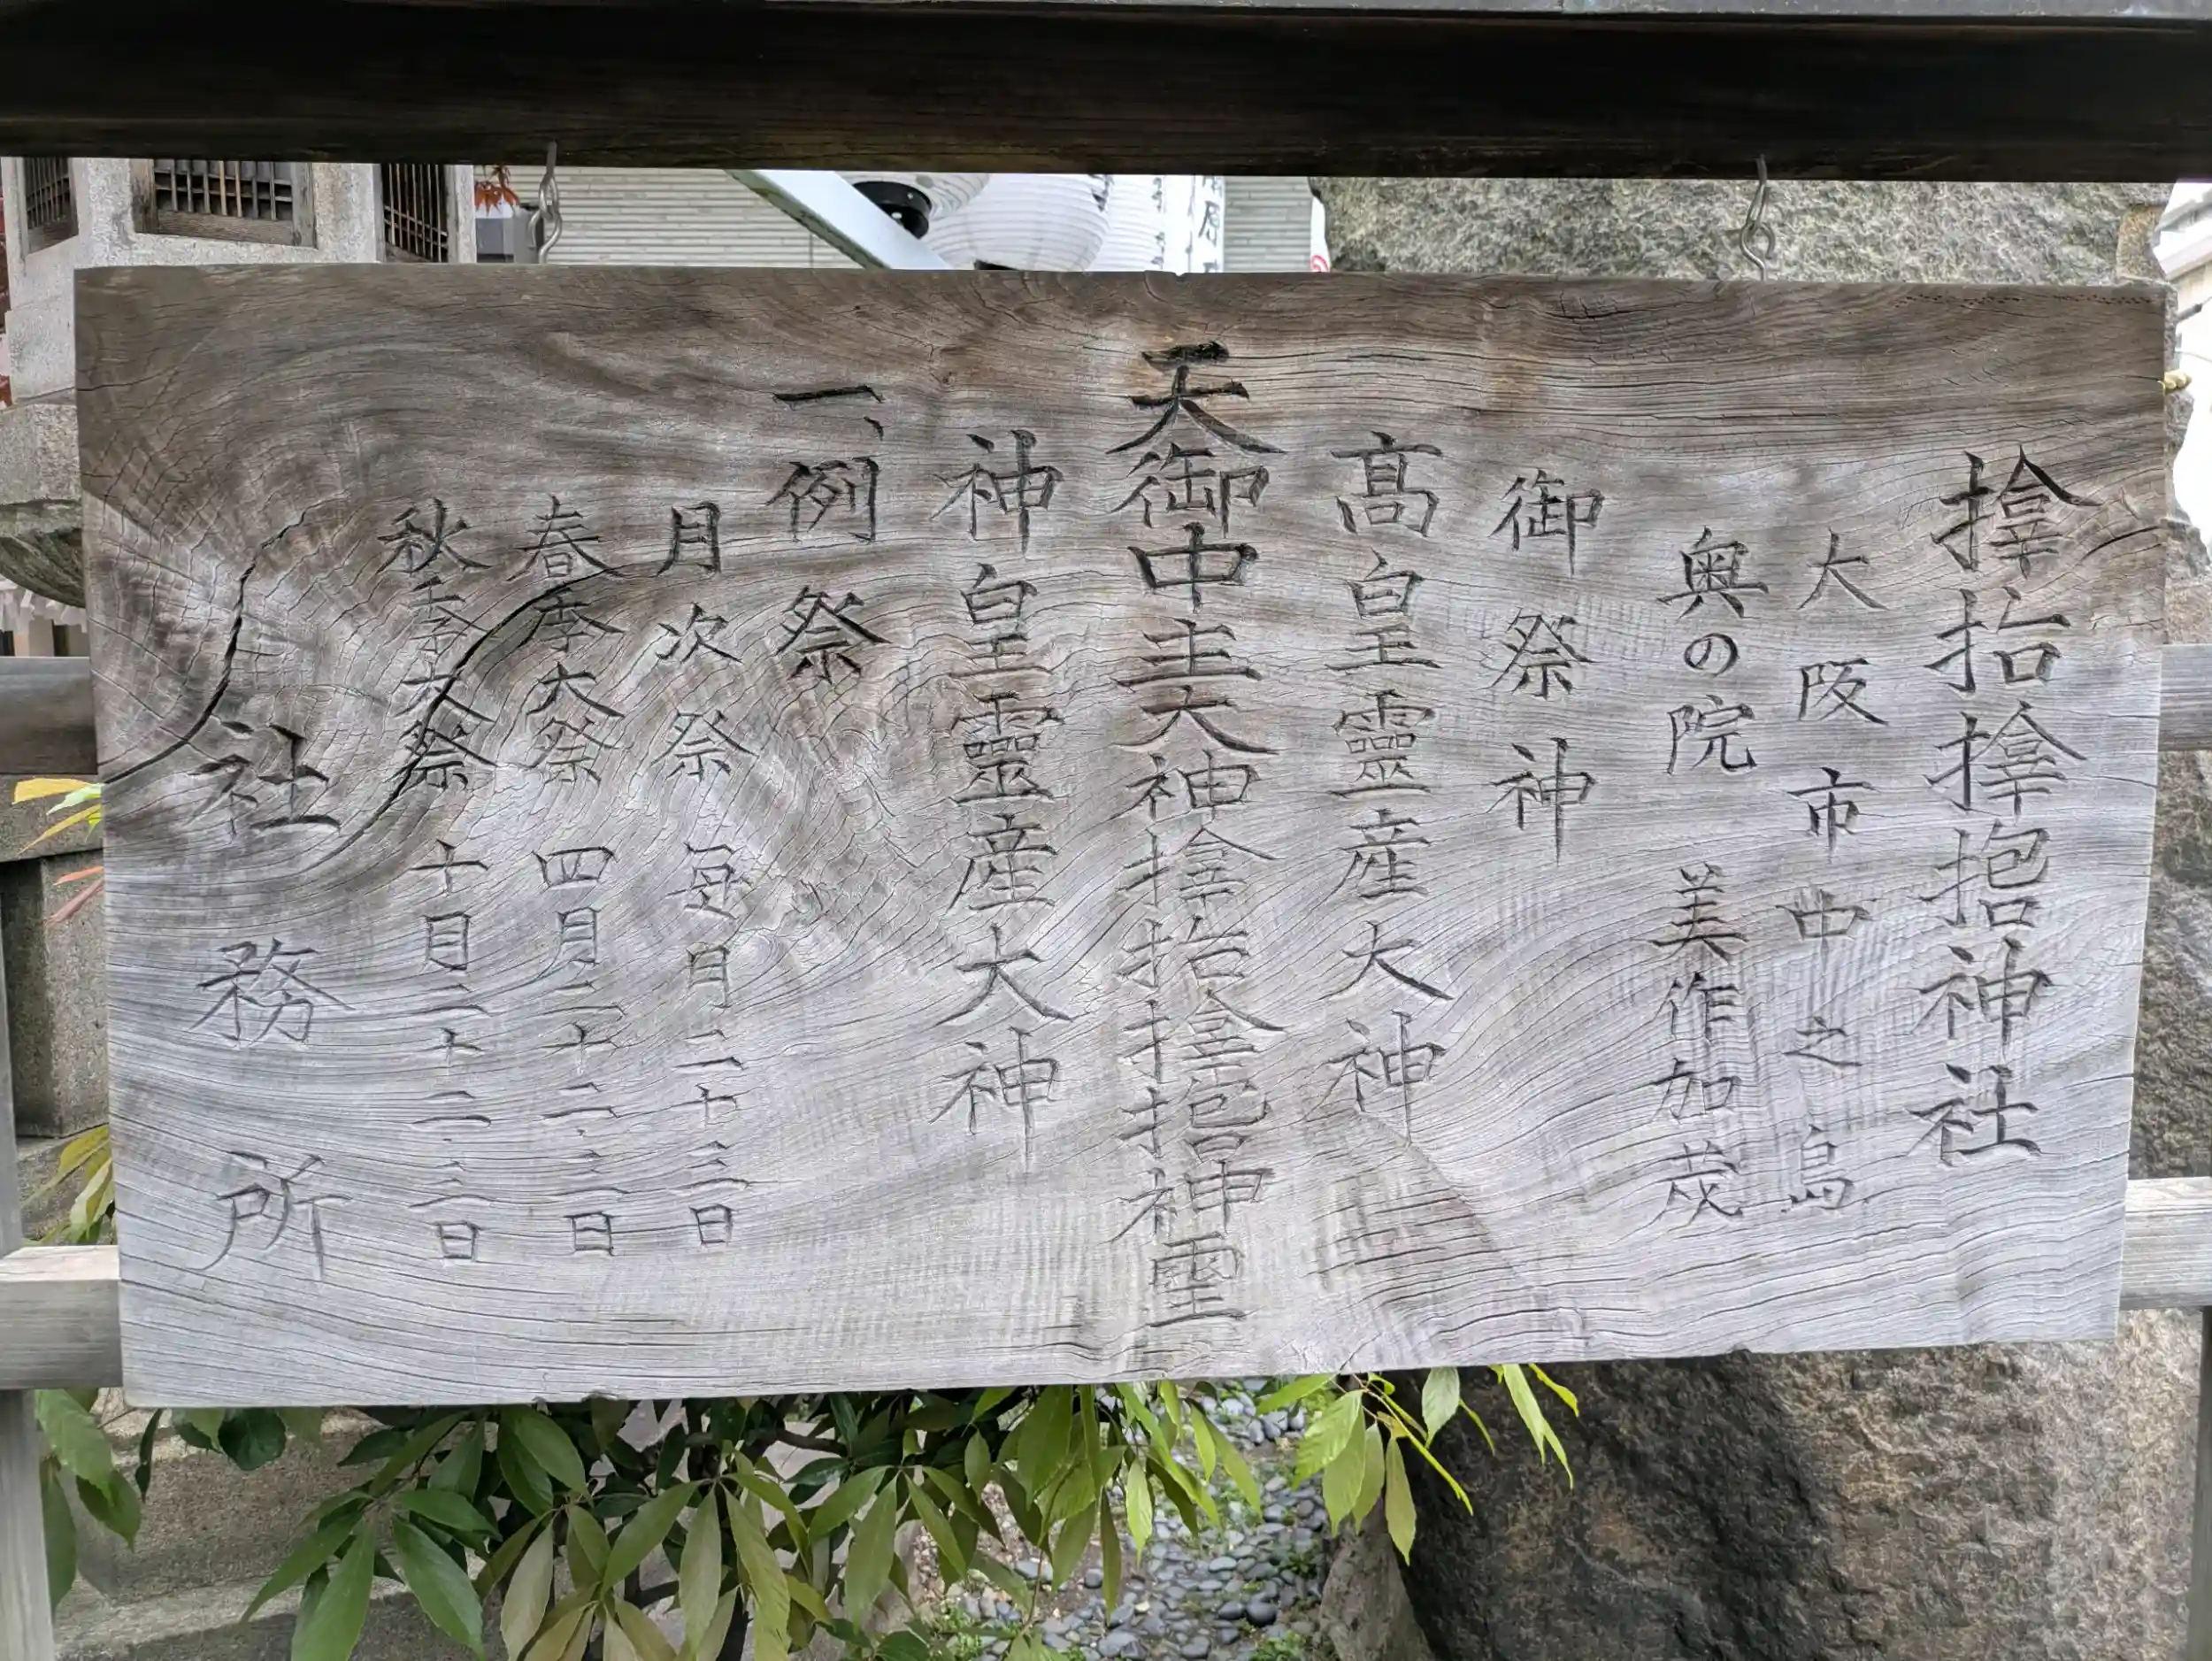 𪮷抬𪮷𪮇神社
大阪市中之島
奥の院 美作加茂
御祭神
髙皇靈産大神
天御中主大神𪮷抬𪮷𪮇神霊
神皇靈産大神
一、例祭
月次祭 毎月二十三日
春季大祭 四月二十二・三日
秋季大祭 十月二十二・三日
社務所
原